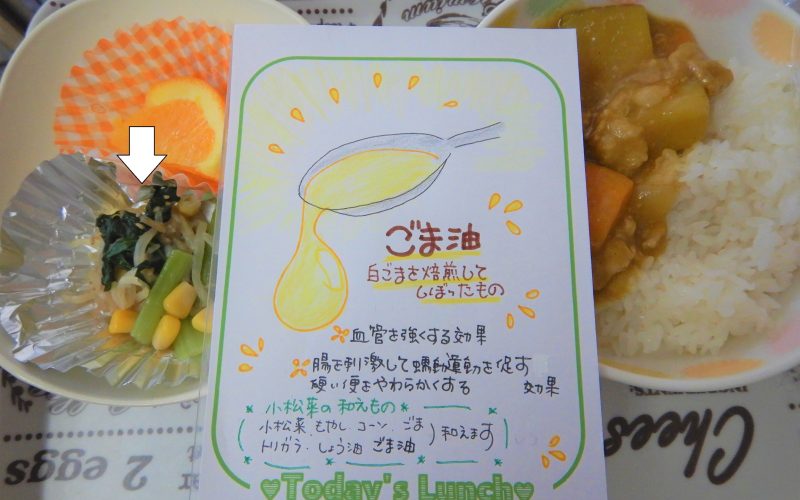 ごま油
白ごまを焙煎して
しぼったもの
血管を強くする効果
腸を刺激して蠕動運動を促す
硬い便をやわらかくする 効果
小松菜の和えもの
(小松菜、もやし、コーン、ごま
トリガラ、しょう油 ごま油)和えます
♥Today's Lunch♥
2 eggs
Chees